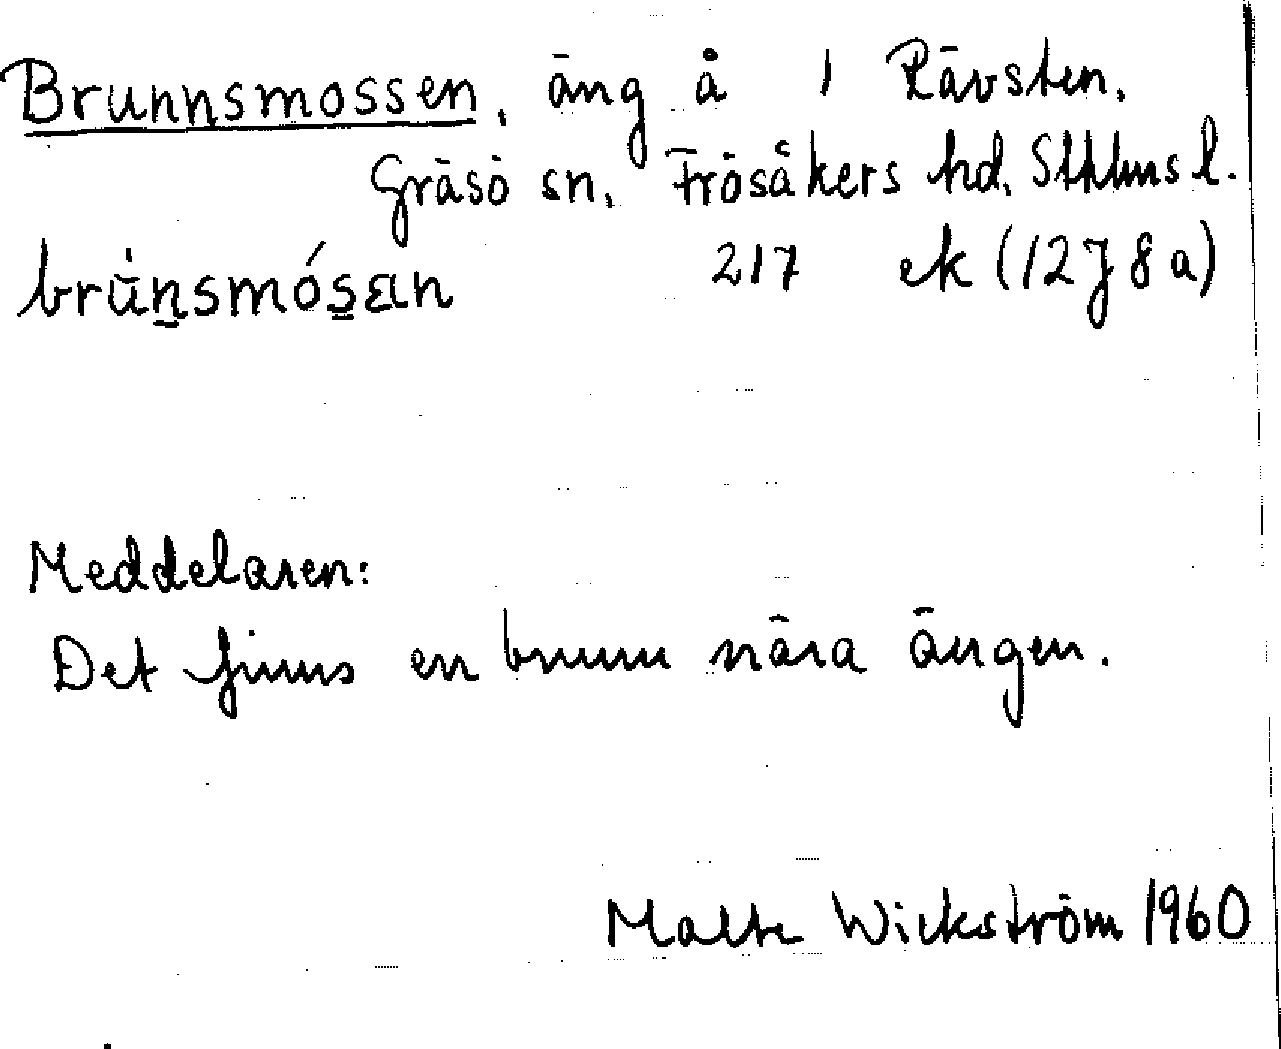 Brunnsmossen, äng å 1 Rävsten.
Gräsö sn. Frösåkers hd. Sthlms l.
217 ek (12J8a)
Meddelaren:
Det finns en brunn nära ängen.
Malte Wickström 1960